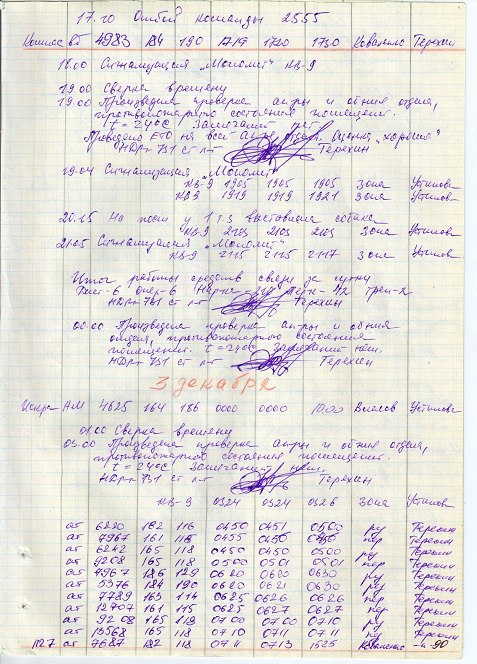 17.20 Отбой команды 2555
4983 184 190 1719 1720 1730 Коваленко Терехин
18.00 Сигнализация „Монолит" КВ-9
19.00 Сверка времени
19.00 Произведена проверка ап-ры и общия отдел,
противопожарного состояния помещений.
t = 24°C. Замечаний нет.
Проведено ЕТО на всей ап-ре отдел. Оценка „хорошо"
НДР-731 ст л-т Терехин
19.04 Сигнализация „Монолит"
КВ-9 1905 1905 1905 Зона Устинов
КВ9 1919 1919 1921 Зона Устинов
20.15 На посту у выставлена собака
21.05 Сигнализация „Монолит"
КВ-9 2103 2103 2103 Зона Устинов
КВ-9 2115 2115 2117 Зона Устинов
Итог работы средств связи за сутки
НДР-731 ст л-т Терехин
00.00 Произведена проверка ап-ры и общия
отдел, противопожарного состояния
помещений. t = 24°C Замечаний нет.
НДР-731 ст л-т Терехин
3 декабря
Искра НМ 4625 164 186 0000 0000 Власов Устинов
01.00 Сверка времени
03.00 Произведена проверка ап-ры и общия отдел,
противопожарного состояния помещений.
t = 24°C Замечаний нет.
НДР-731 ст л-т Терехин
КВ-9 0324 0324 0326 Зона Устинов
ат 6220 182 116 0450 0451 0500 ру Терехин
ат 4967 161 115 0455 0450 0450 пер Терехин
ат 6242 165 118 0450 0450 0500 ру Терехин
ат 9208 165 118 0500 0501 0501 пер Терехин
ат 4967 186 129 0620 0620 0630 ру Терехин
ат 5376 184 190 0620 0621 0630 ру Терехин
ат 7789 163 114 0625 0626 0626 пер Терехин
ат 12407 161 115 0625 0627 0627 пер Терехин
ат 9208 165 118 0700 0700 0710 ру Терехин
ат 13568 165 118 0710 0711 0711 ру Терехин
1127 ат 7687 182 118 0711 0713 1525 Коваленко